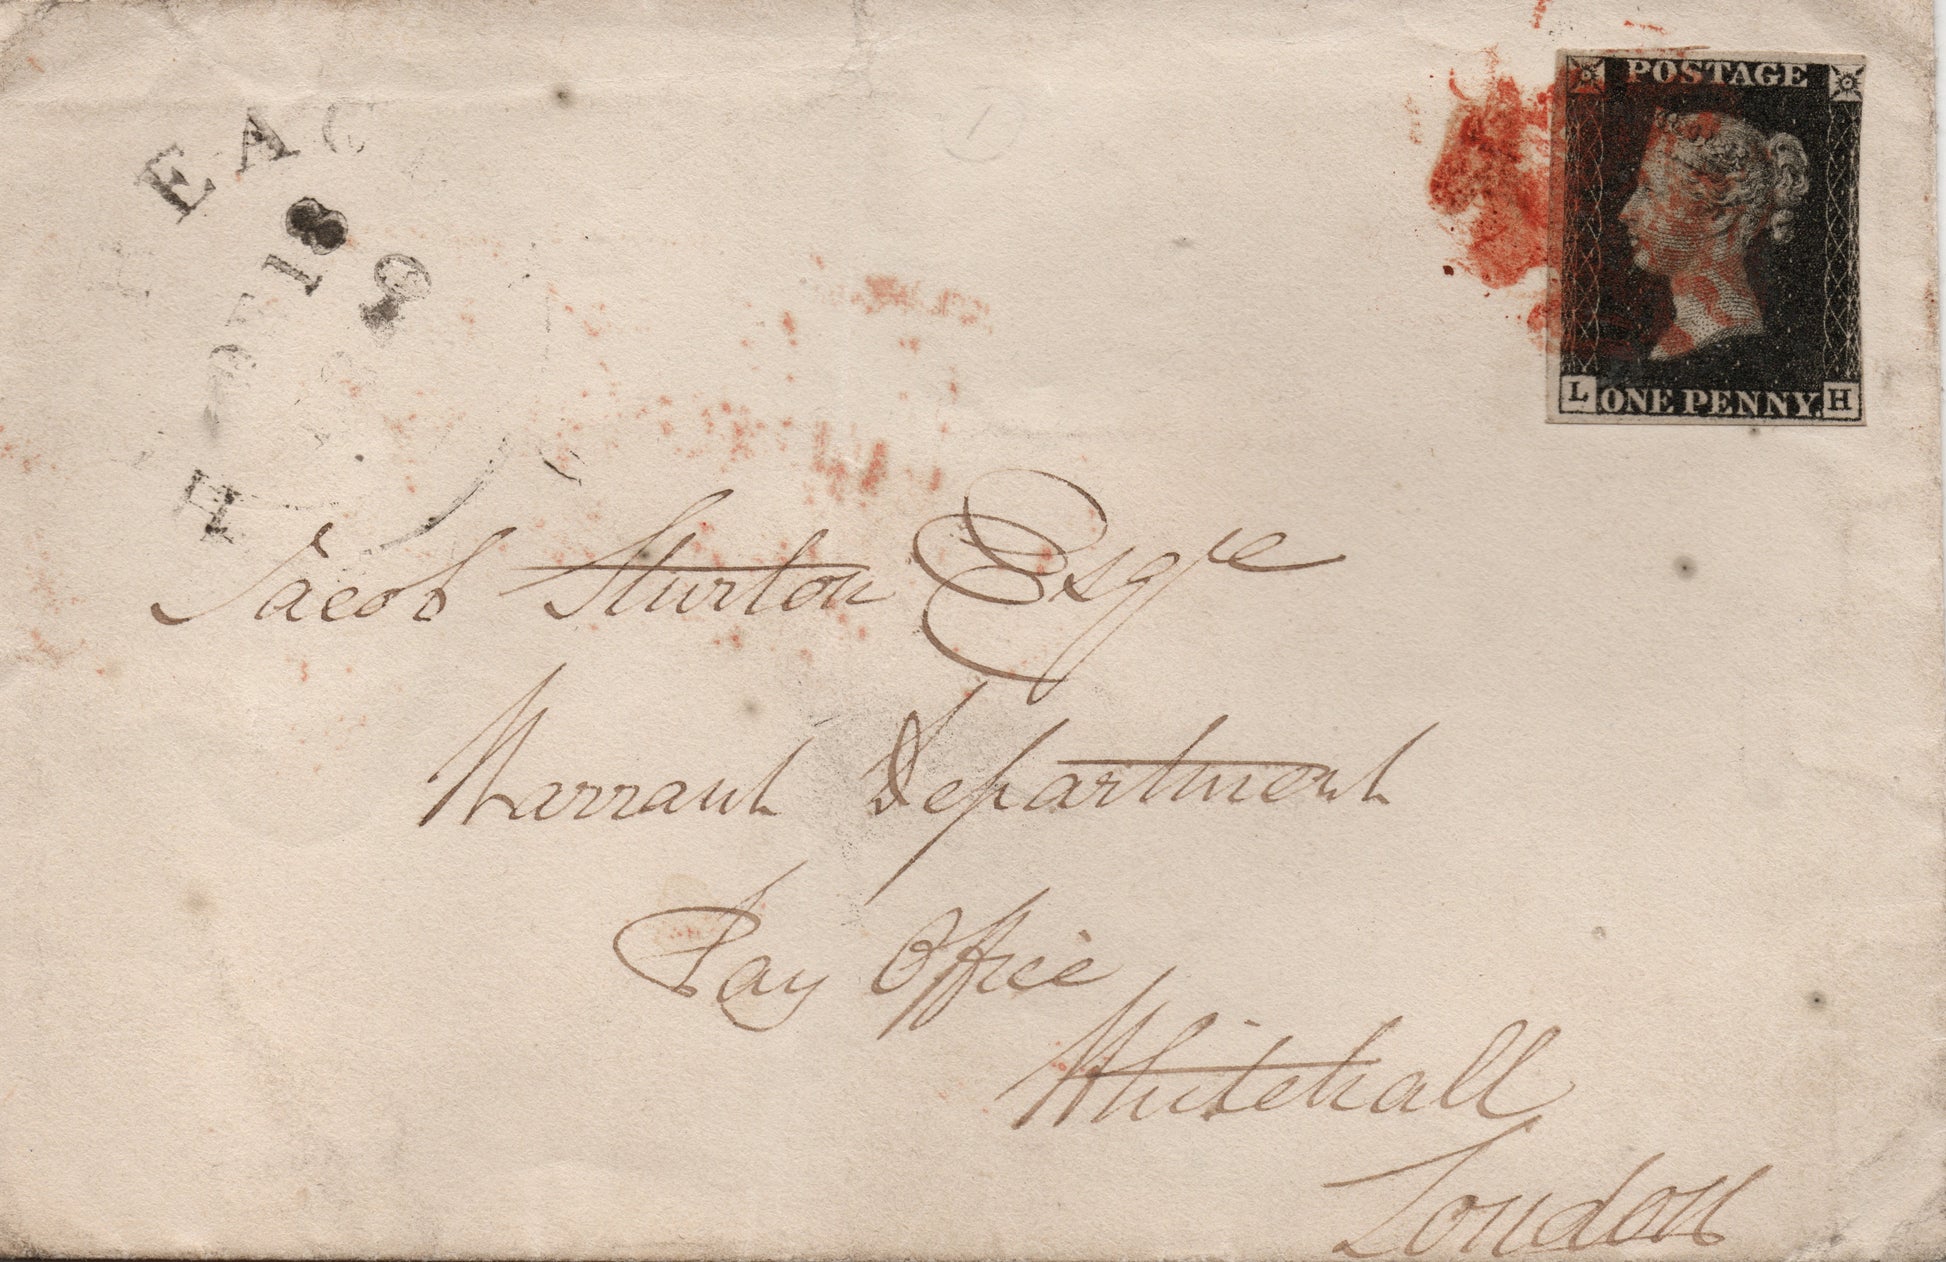 POSTAGE
L ONE PENNY. H
18
Jacob Sturton Esqre
Warrant Department
Pay Office
Whitehall
London